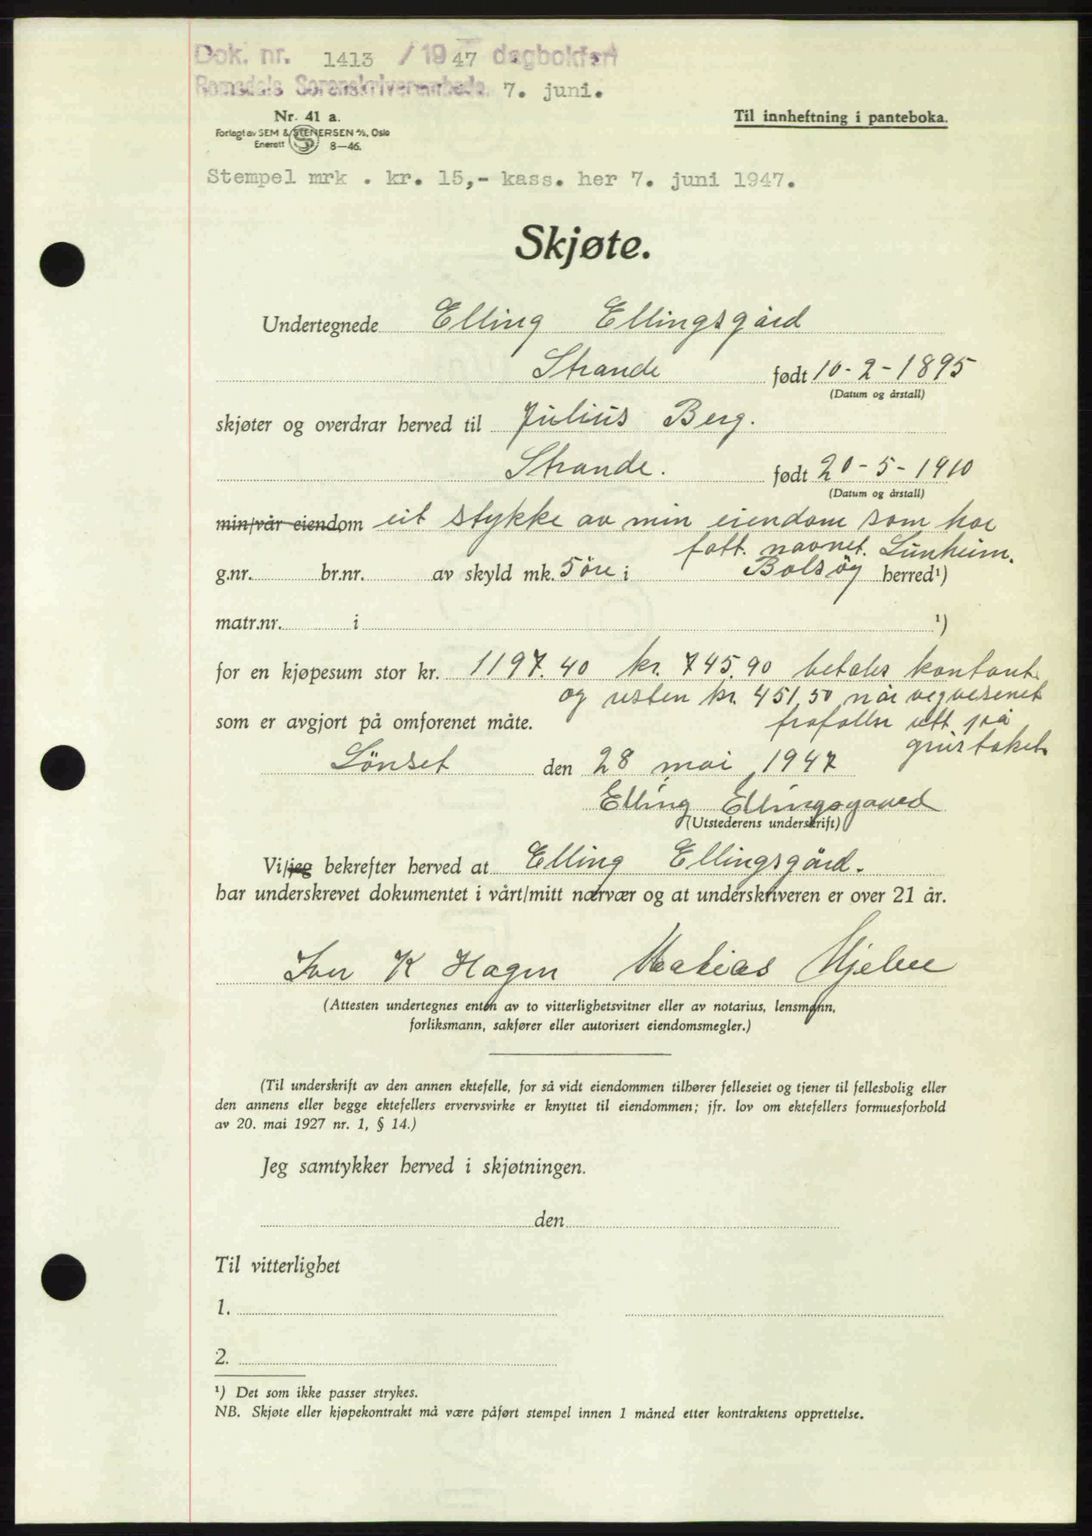 Dok. nr. 1413 / 19 47 dagbokført
Romsdals Sorenskriverembede. 7. juni.
Nr. 41 a.
Forlagt av SEM & STENERSEN A/S, Oslo
Enerett 8–46.
Til innheftning i panteboka.
Stempel mrk . kr. 15,- kass. her 7. juni 1947.
Skjøte.
Undertegnede Elling Ellingsgård
Strande født 10-2-1895
(Datum og årstall)
skjøter og overdrar herved til Julius Berg.
Strande. født 20-5-1910
(Datum og årstall)
min/vår eiendom eit stykke av min eiendom som har
fått navnet Lunheim.
g.nr. br.nr. av skyld mk. 5 öre i Bolsöy herred¹)
matr.nr. i ¹)
for en kjøpesum stor kr. 1197.40 kr. 745.90 betales kontant
og resten kr. 451,50 når vegvesenet
som er avgjort på omforenet måte.
grustaket.
Lönset den 28 mai 1947
Elling Ellingsgaard
(Utstederens underskrift)
Vi/jeg bekrefter herved at Elling Ellingsgård.
har underskrevet dokumentet i vårt/mitt nærvær og at underskriveren er over 21 år.
Iver K Hagen Matias Hjelve
(Attesten undertegnes enten av to vitterlighetsvitner eller av notarius, lensmann,
forliksmann, sakfører eller autorisert eiendomsmegler.)
(Til underskrift av den annen ektefelle, for så vidt eiendommen tilhører felleseiet og tjener til fellesbolig eller
den annens eller begge ektefellers ervervsvirke er knyttet til eiendommen; jfr. lov om ektefellers formuesforhold
av 20. mai 1927 nr. 1, § 14.)
Jeg samtykker herved i skjøtningen.
den
Til vitterlighet
1.
2.
¹) Det som ikke passer strykes.
NB. Skjøte eller kjøpekontrakt må være påført stempel innen 1 måned etter kontraktens opprettelse.